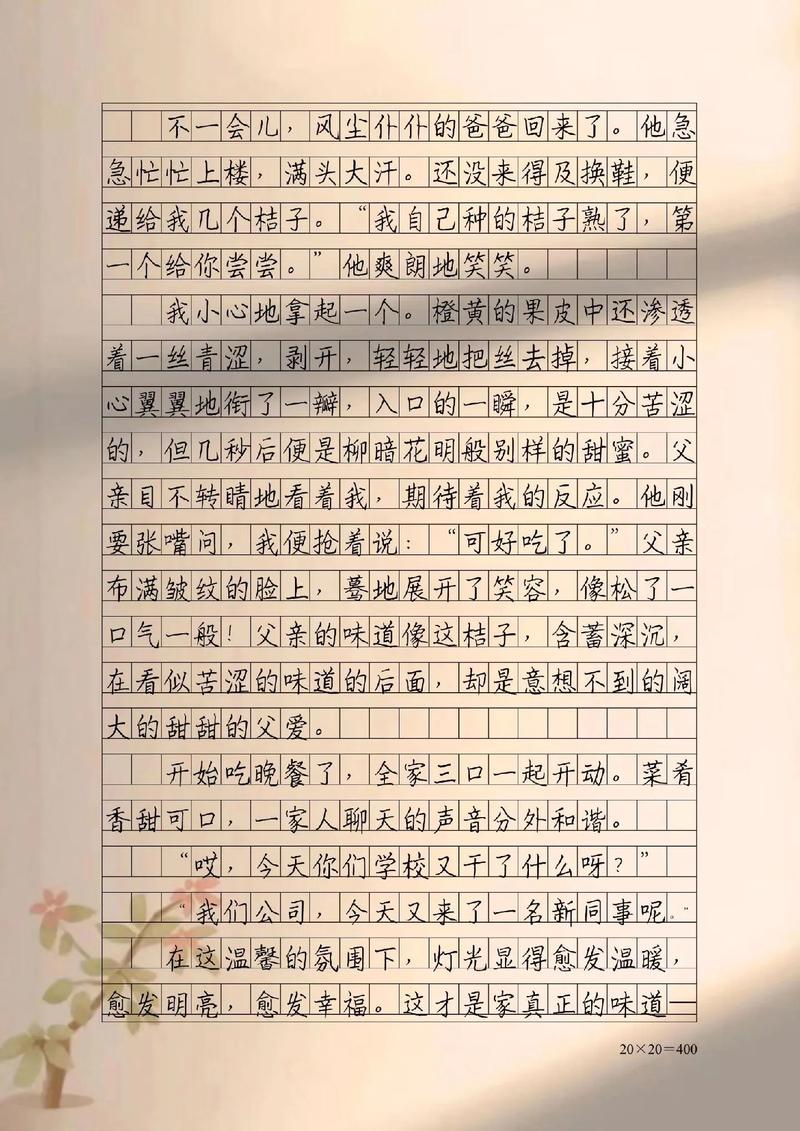 不一会儿，风尘仆仆的爸爸回来了。他急
急忙忙上楼，满头大汗。还没来得及换鞋，便
递给我几个桔子。“我自己种的桔子熟了，第
一个给你尝尝。”他爽朗地笑笑。
我小心地拿起一个。橙黄的果皮中还渗透
着一丝青涩，剥开，轻轻地把丝去掉，接着小
心翼翼地衔了一瓣，入口的一瞬，是十分苦涩
的，但几秒后便是柳暗花明般别样的甜蜜。父
亲目不转睛地看着我，期待着我的反应。他刚
要张嘴问，我便抢着说：“可好吃了。”父亲
布满皱纹的脸上，蓦地展开了笑容，像松了一
口气一般！父亲的味道像这桔子，含蓄深沉，
在看似苦涩的味道的后面，却是意想不到的阔
大的甜甜的父爱。
开始吃晚餐了，全家三口一起开动。菜肴
香甜可口，一家人聊天的声音分外和谐。
“哎，今天你们学校又干了什么呀？”
“我们公司，今天又来了一名新同事呢。”
在这温馨的氛围下，灯光显得愈发温暖，
愈发明亮，愈发幸福。这才是家真正的味道—
20×20=400